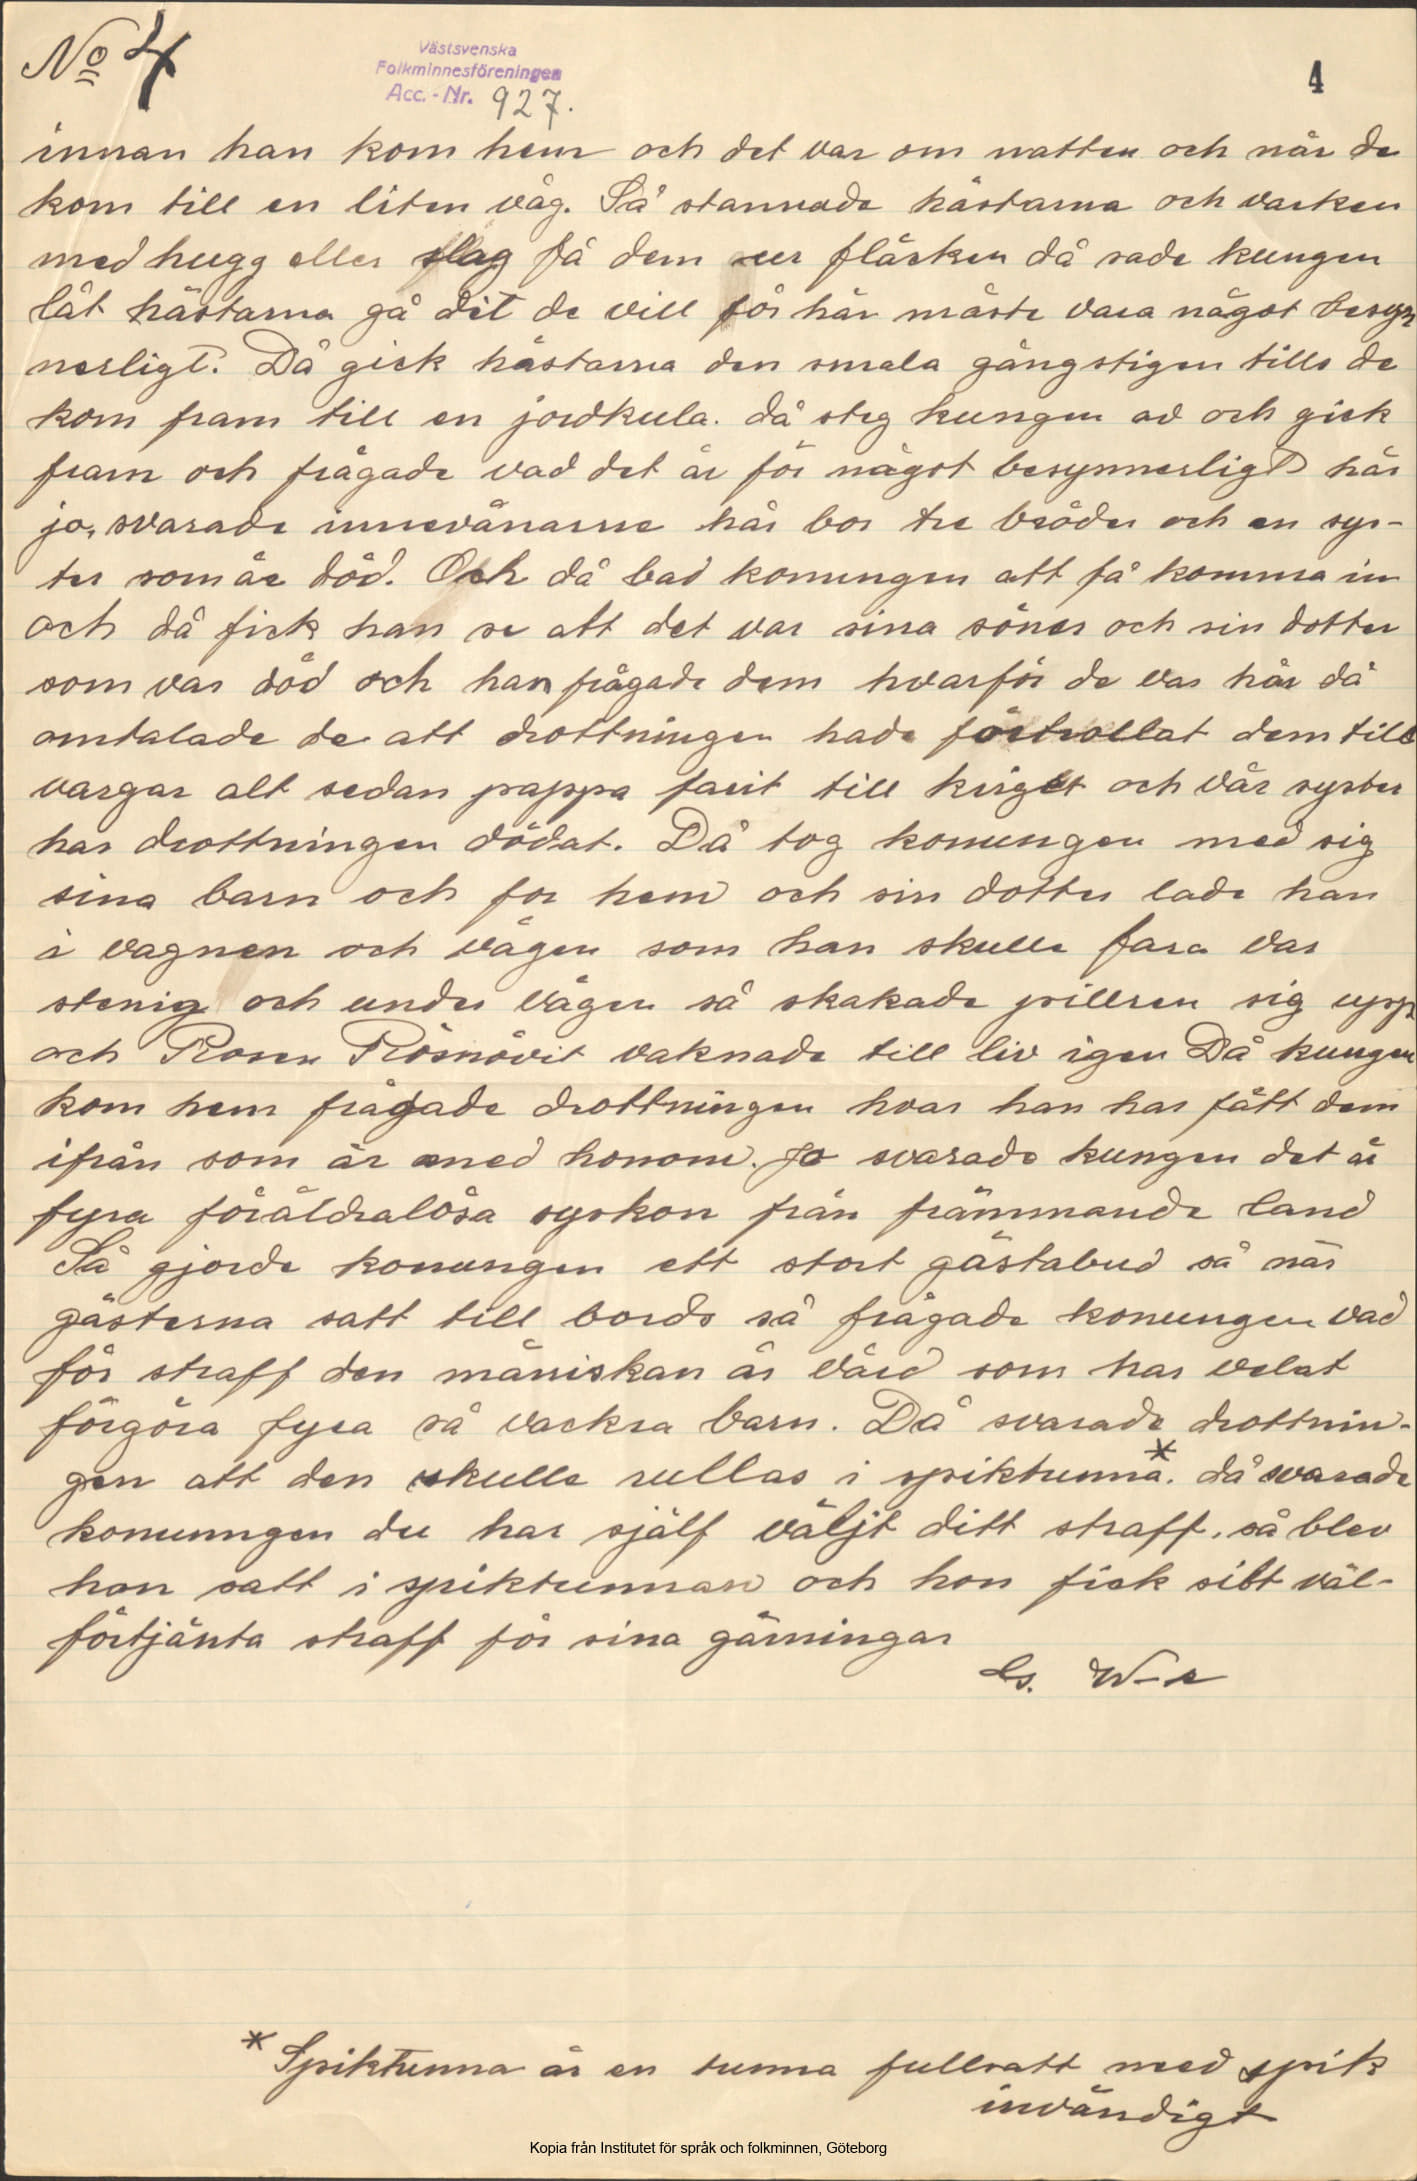 No 4
Västsvenska
Folkminnesföreningen
Acc.-Nr. 927.
4
innan han kom hem och det var om natten och när de
kom till en liten väg. Så stannade hästarna och varken
med hugg eller slag få dem ur fläcken då sade kungen
låt hästarna gå dit de vill för här måste vara något besyn
nerligt. Då gick hästarna den smala gångstigen tills de
kom fram till en jordkula. då steg kungen av och gick
fram och frågade vad det är för något besynnerligt här
jo, svarade innevånarne här bor tre bröder och en sys-
ter som är död. Och då bad konungen att få komma in
och då fick han se att det var sina söner och sin dotter
som var död och han frågade dem hvarför de var här då
omtalade de att drottningen hade förtrollat dem till
vargar alt sedan pappa farit till kriget och vår syster
har drottningen dödat. Då tog konungen med sig
sina barn och for hem och sin dotter lade han
i vagnen och vägen som han skulle fara var
stenig och under vägen så skakade pillren sig upp
och Rosen Rösnövit vaknade till liv igen Då kungen
kom hem frågade drottningen hvar han har fått dem
ifrån som är med honom. Jo svarade kungen det är
fyra föräldralösa syskon från främmande land
Så gjorde konungen ett stort gästabud så när
gästerna satt till bords så frågade konungen vad
för straff den mäniskan är värd som har velat
förgöra fyra så vackra barn. Då svarade drottnin-
gen att den skulle rullas i spiktunna*. då svarade
konunngen du har själf väljt ditt straff. så blev
hon satt i spiktunnan och hon fick sitt väl-
förtjänta straff för sina gärningar
Gs. W-e
* Spiktunna är en tunna fullsatt med spik
invändigt
Kopia från Institutet för språk och folkminnen, Göteborg